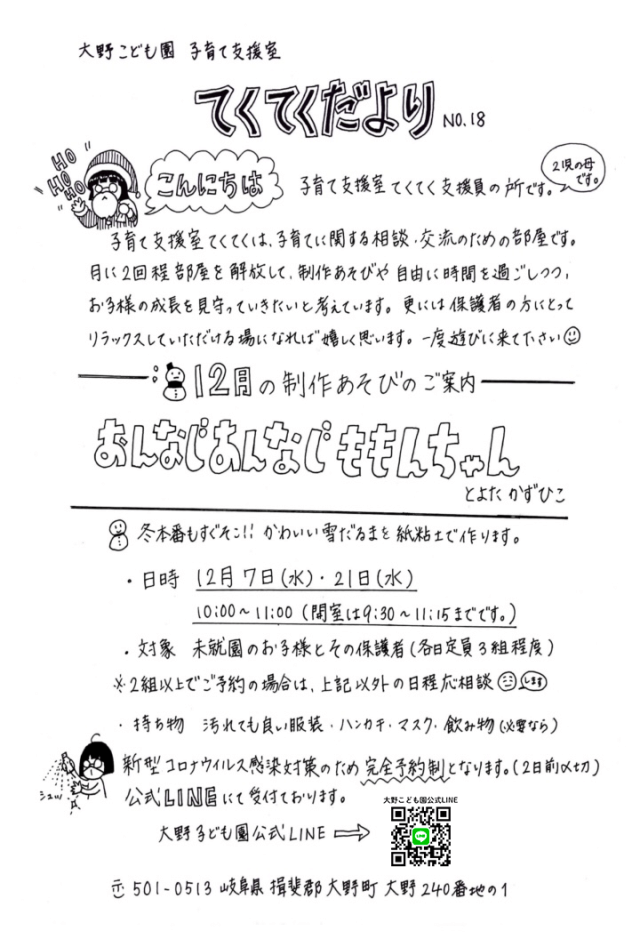 大野こども園 子育て支援室
てくてくだより NO.18
HO HO HO
こんにちは 子育て支援室てくてく支援員の所です。
2児の母です。
子育て支援室てくてくは、子育てに関する相談・交流のための部屋です。
月に2回程部屋を解放して、制作あそびや自由に時間を過ごしつつ、
お子様の成長を見守っていきたいと考えています。更には保護者の方にとって
リラックスしていただける場になれば嬉しく思います。一度遊びに来て下さい
12月の制作あそびのご案内
おんなじおんなじももんちゃん
とよた かずひこ
冬本番もすぐそこ!! かわいい雪だるまを紙粘土で作ります。
・日時 12月7日(水)・21日(水)
10:00~11:00 (開室は9:30~11:15までです。)
・対象 未就園のお子様とその保護者(各日定員3組程度)
※2組以上でご予約の場合は、上記以外の日程応相談 します
・持ち物 汚れても良い服装・ハンカチ・マスク・飲み物(必要なら)
新型コロナウイルス感染対策のため完全予約制となります。(2日前〆切)
シュッ
公式LINEにて受付ております。
大野こども園公式LINE
大野子ども園公式LINE ⇒
LINE
〒501-0513 岐阜県 揖斐郡 大野町 大野240番地の1